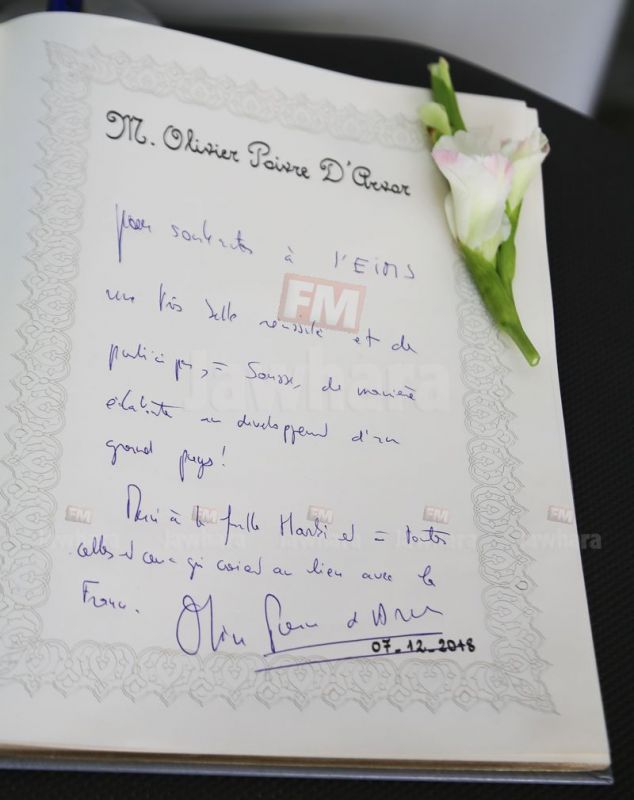 M. Olivier Poivre D'Arvor
pour souhaiter à l'EIMS
une très belle réussite et de
participer, à Sousse, de manière
éclatante au développement d'un
grand pays!
Merci à la famille et à toutes
celles et ceux qui croient au lien avec la
France.
Olivier Poivre d'Arvor
07_12_2018
FM
Jawhara
FM
FM
FM
FM
Jawhara
Jawhara